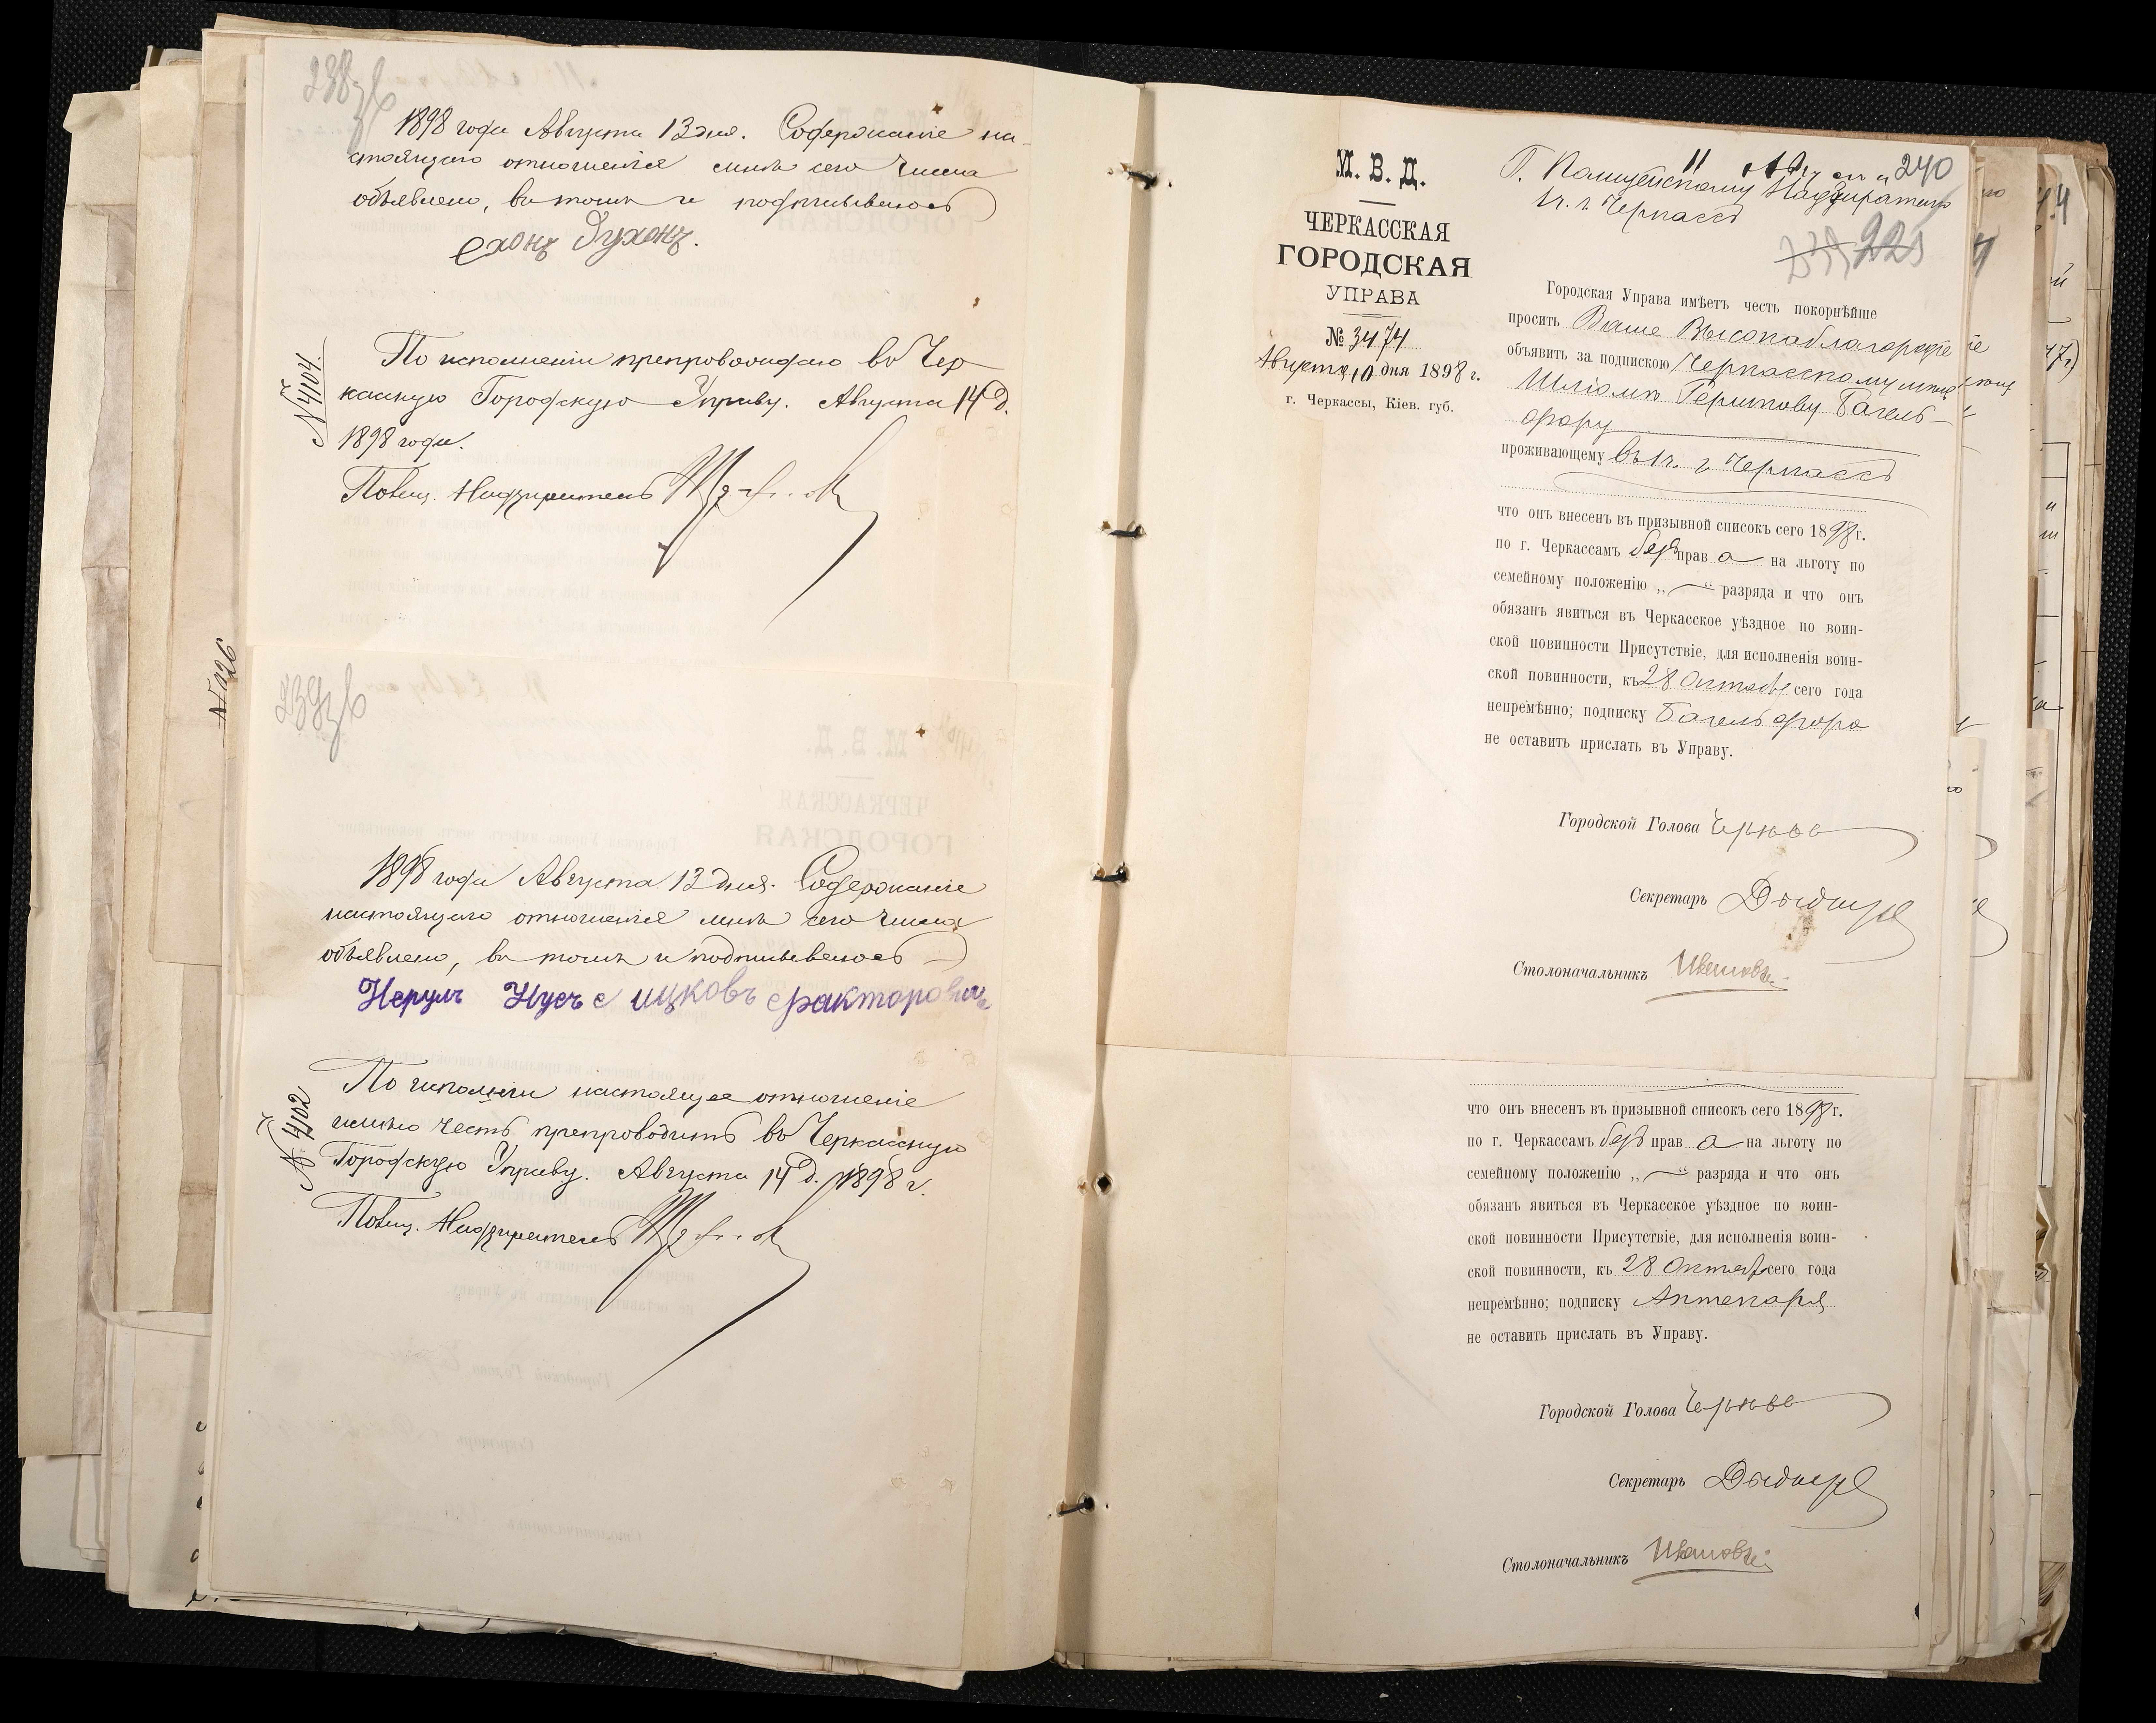 238 об
1898 года Августа 13 дня. Содержание на-
стоящаго отношенія мнѣ сего числа
объявлено, въ томъ и подписываюсь
По исполненіи препровождаю въ Чер-
касскую Городскую Управу. Августа 14 д.
1898 года.
№ 4104.
Полиц. Надзиратель
№ 226
239 об
1898 года Августа 13 дня. Содержаніе
настоящаго отношенія мнѣ сего числа
объявлено, въ томъ и подписываюсь
ицковъ факторовичъ
По исполненіи настоящее отношеніе
имѣю честь препроводить въ Черкасскую
Городскую Управу. Августа 14 д. 1898 г.
№ 4102
Полиц. Надзиратель
М. В. Д.
ЧЕРКАССКАЯ
ГОРОДСКАЯ
УПРАВА
№ 3474
Августа 10 дня 1898 г.
г. Черкассы, Кіев. губ.
11 240
Г. Полицейскому Надзирателю
1 ч. г. Черкассъ
Городская Управа имѣетъ честь покорнѣйше
просить Ваше Высокоблагородіе
объявить за подпискою Черкасскому мѣщ
Шліомѣ Гершкову Багель-
фору
проживающему въ 1 ч. г. Черкассъ
что онъ внесенъ въ призывной списокъ сего 1898 г.
по г. Черкассамъ безъ права на льготу по
семейному положенію „—“ разряда и что онъ
обязанъ явиться въ Черкасское уѣздное по воин-
ской повинности Присутствіе, для исполненія воин-
ской повинности, къ 28 Октября сего года
непремѣнно; подписку Багельфора
не оставить прислать въ Управу.
Городской Голова
Секретарь
Столоначальникъ
что онъ внесенъ въ призывной списокъ сего 1898 г.
по г. Черкассамъ безъ права на льготу по
семейному положенію „—“ разряда и что онъ
обязанъ явиться въ Черкасское уѣздное по воин-
ской повинности Присутствіе, для исполненія воин-
ской повинности, къ 28 Октября сего года
непремѣнно; подписку Аптекаря
не оставить прислать въ Управу.
Городской Голова
Секретарь
Столоначальникъ